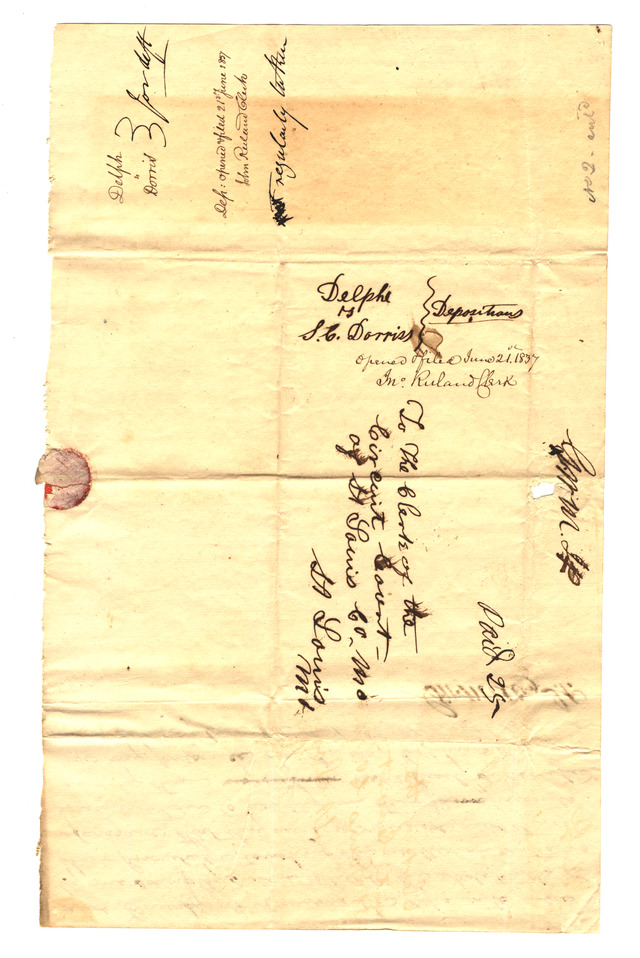 Delph
vs
Dorris } for deft
Dep: opened & filed 21st June 1837
John Ruland Clerk
regularly taken
No 2 - ent'd
Delphe
vs
S. C. Dorriss } Depositions
opened & filed June 21st. 1837
Jno. Ruland Clerk
To The Clerk of the
Circuit Court
of St Louis Co. Mo
St Louis
Mo.
Paid 25